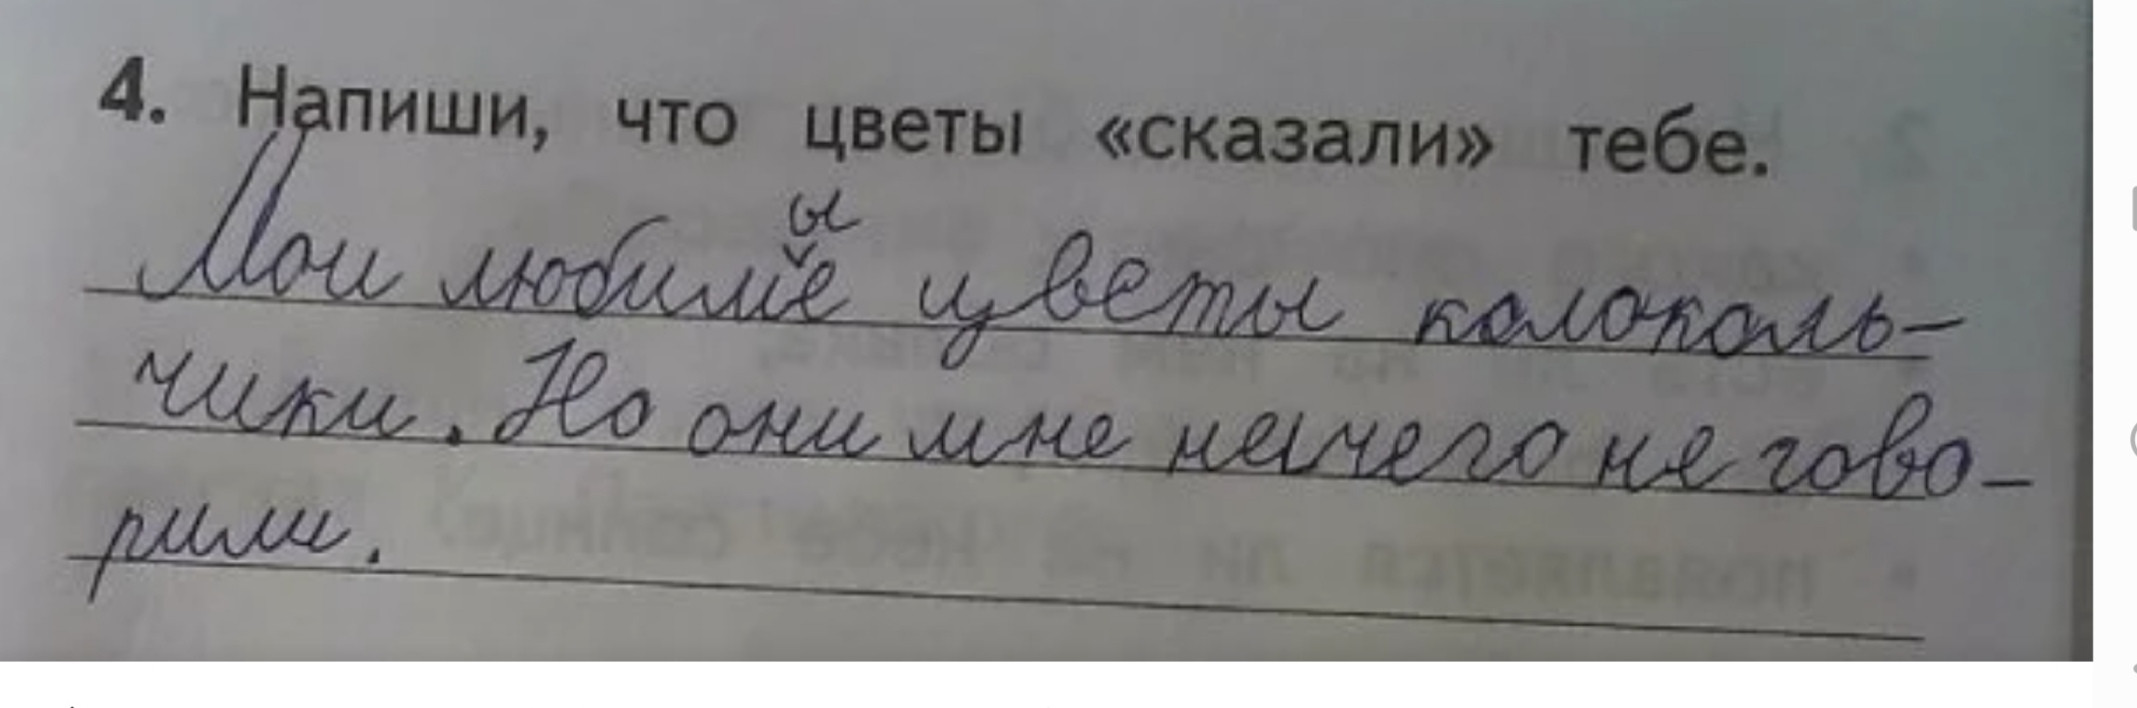 4. Напиши, что цветы «сказали» тебе.
Мои любимые цветы колоколь-
чики. Но они мне нечего не гово-
рили.